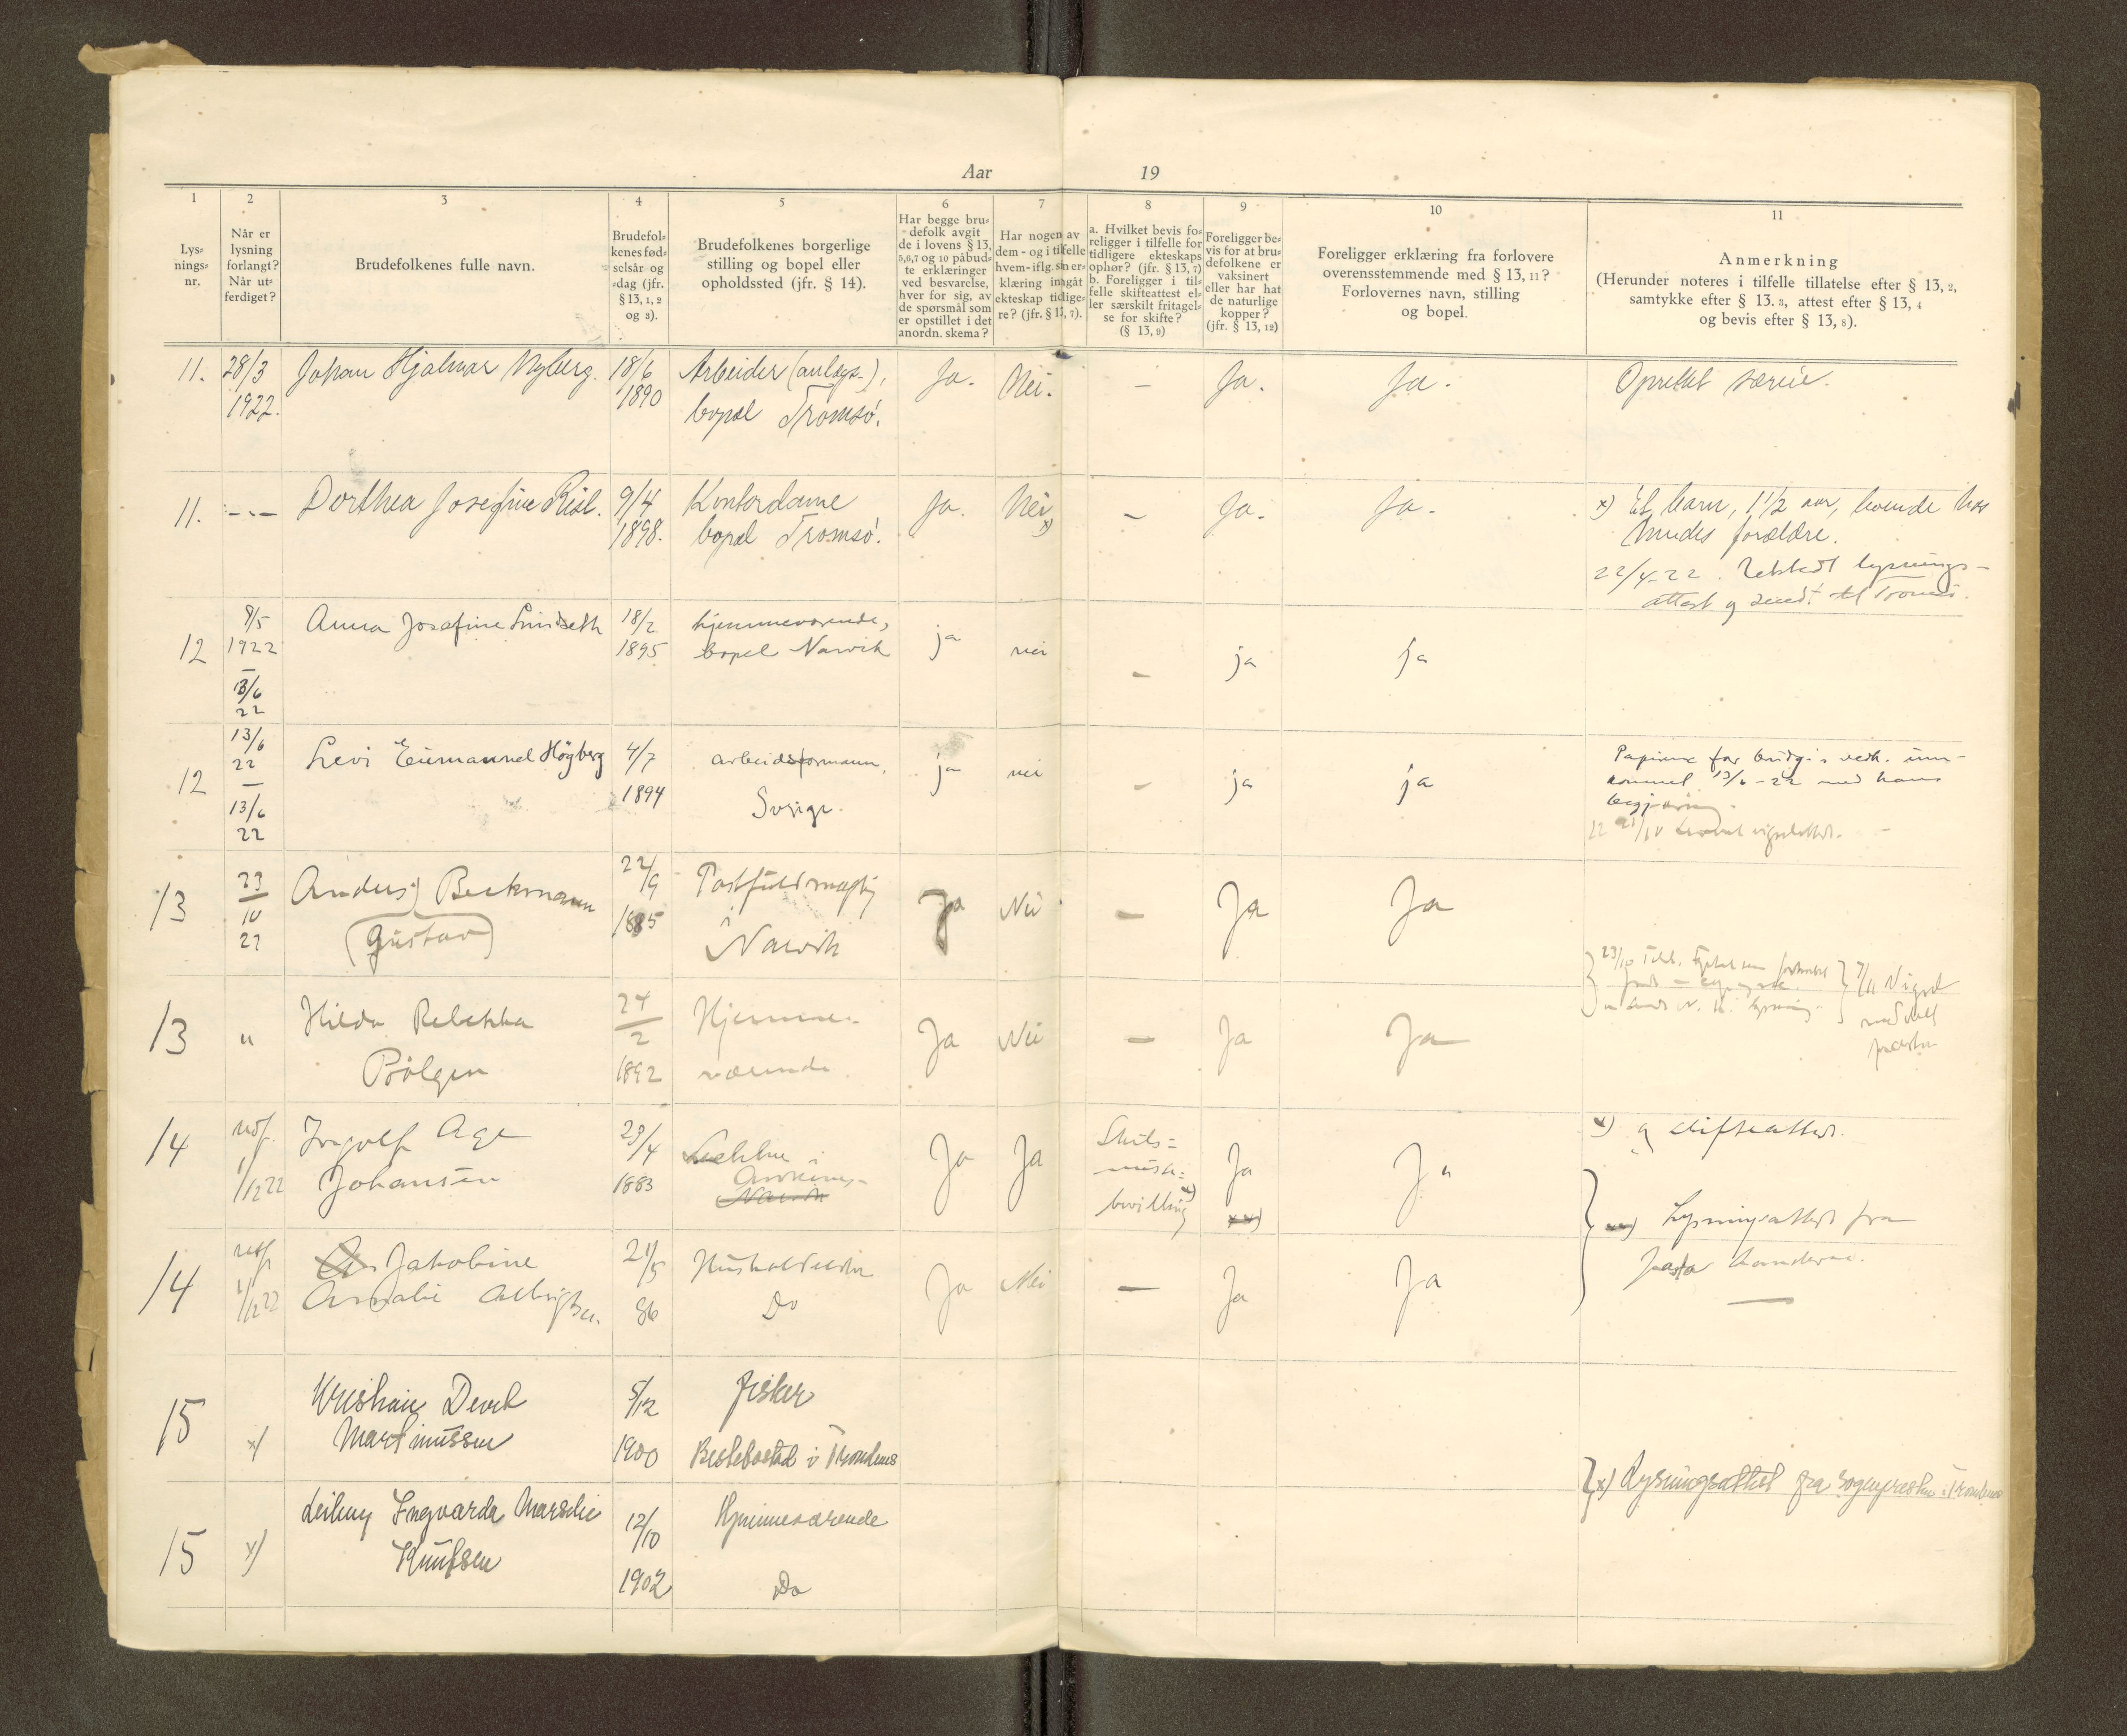 Aar 19
1 2 3 4 5 6 7 8 9 10 11
Lys-
nings-
nr.
Når er
lysning
forlangt?
Når ut-
ferdiget?
Brudefolkenes fulle navn.
Brudefol-
kenes fød-
selsår og
-dag (jfr.
§ 13, 1, 2
og 3).
Brudefolkenes borgerlige
stilling og bopel eller
opholdssted (jfr. § 14).
Har begge bru-
defolk avgit
de i lovens § 13,
5,6,7 og 10 påbud-
te erklæringer
ved besvarelse,
hver for sig, av
de spørsmål som
er opstillet i det
anordn. skema?
Har nogen av
dem - og i tilfelle
hvem - iflg. sin er-
klæring inngåt
ekteskap tidlige-
re? (jfr. § 13, 7).
a. Hvilket bevis fo-
religger i tilfelle for
tidligere ekteskaps
ophør? (jfr. § 13, 7)
b. Foreligger i til-
felle skifteattest el-
ler særskilt fritagel-
se for skifte?
(§ 13, 9)
Foreligger be-
vis for at bru-
defolkene er
vaksinert
eller har hat
de naturlige
kopper?
(jfr. § 13, 12)
Foreligger erklæring fra forlovere
overensstemmende med § 13, 11?
Forlovernes navn, stilling
og bopel.
Anmerkning
(Herunder noteres i tilfelle tillatelse efter § 13, 2,
samtykke efter § 13. 3, attest efter § 13, 4
og bevis efter § 13, 8).
11. 28/3 Johan Hjalmar Nyberg. 18/6 Arbeider (anlægs-), Ja. Nei. – Ja. Ja. Oprettet særeie.
1922. 1890 bopæl Tromsø.
11. –"– Dorthea Josefine Risl. 9/4 Kontordame Ja. Nei x) – Ja. Ja. x) Et barn, 1 1/2 aar, boende hos
1898. bopæl Tromsø. brudes forældre.
22/4-22. Utstedt lysnings-
attest og sendt til Tromsø.
12 8/5 Anna Josefine 18/2 hjemmeværende, ja nei – ja ja
1922 1895 bopel Narvik
–
13/6
22
12 13/6 Levi Emanuel Högberg 4/7 arbeidsformann, ja nei – ja ja Papirene for brudg. vedk. inn-
22 1894 Sverige. kommet 13/6-22 med hans
– begjæring.
13/6
22
13 23 Anders) Beckmann 22/9 Postfuldmægtig Ja Nei – Ja Ja
10 (Gustav) 1885 Narvik
22
13 " Hilda Rebekka 24 Hjemme- Ja Nei – Ja Ja
Bølgen 2 værende
1892
14 utf. Ingolf Age 23/4 Ja Ja Skils- Ja Ja x) og skifteattest.
1/12 22 Johansen 1883 Narvik misse-
bevilling x) xx)
xx) Lysningsattest fra
14 utf. Jakobine 21/5 Husholderske Ja Nei – Ja Ja
1/12 22 Amalie Albrigtsen. 86 Do
15 x) Kristian Devik 5/12 fisker
Martinussen 1900 i Trondenes
15 x) Ingvarda Marselie 12/10 Hjemmeværende x) Lysningsattest fra sognepresten i Trondenes
Knutsen 1902 Do